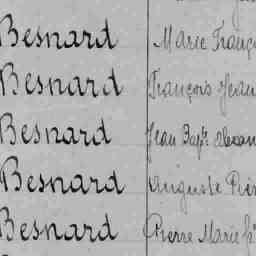 Besnard Marie Franç
Besnard François Jean
Besnard Jean Bapte
Besnard Auguste Pier
Besnard Pierre Marie